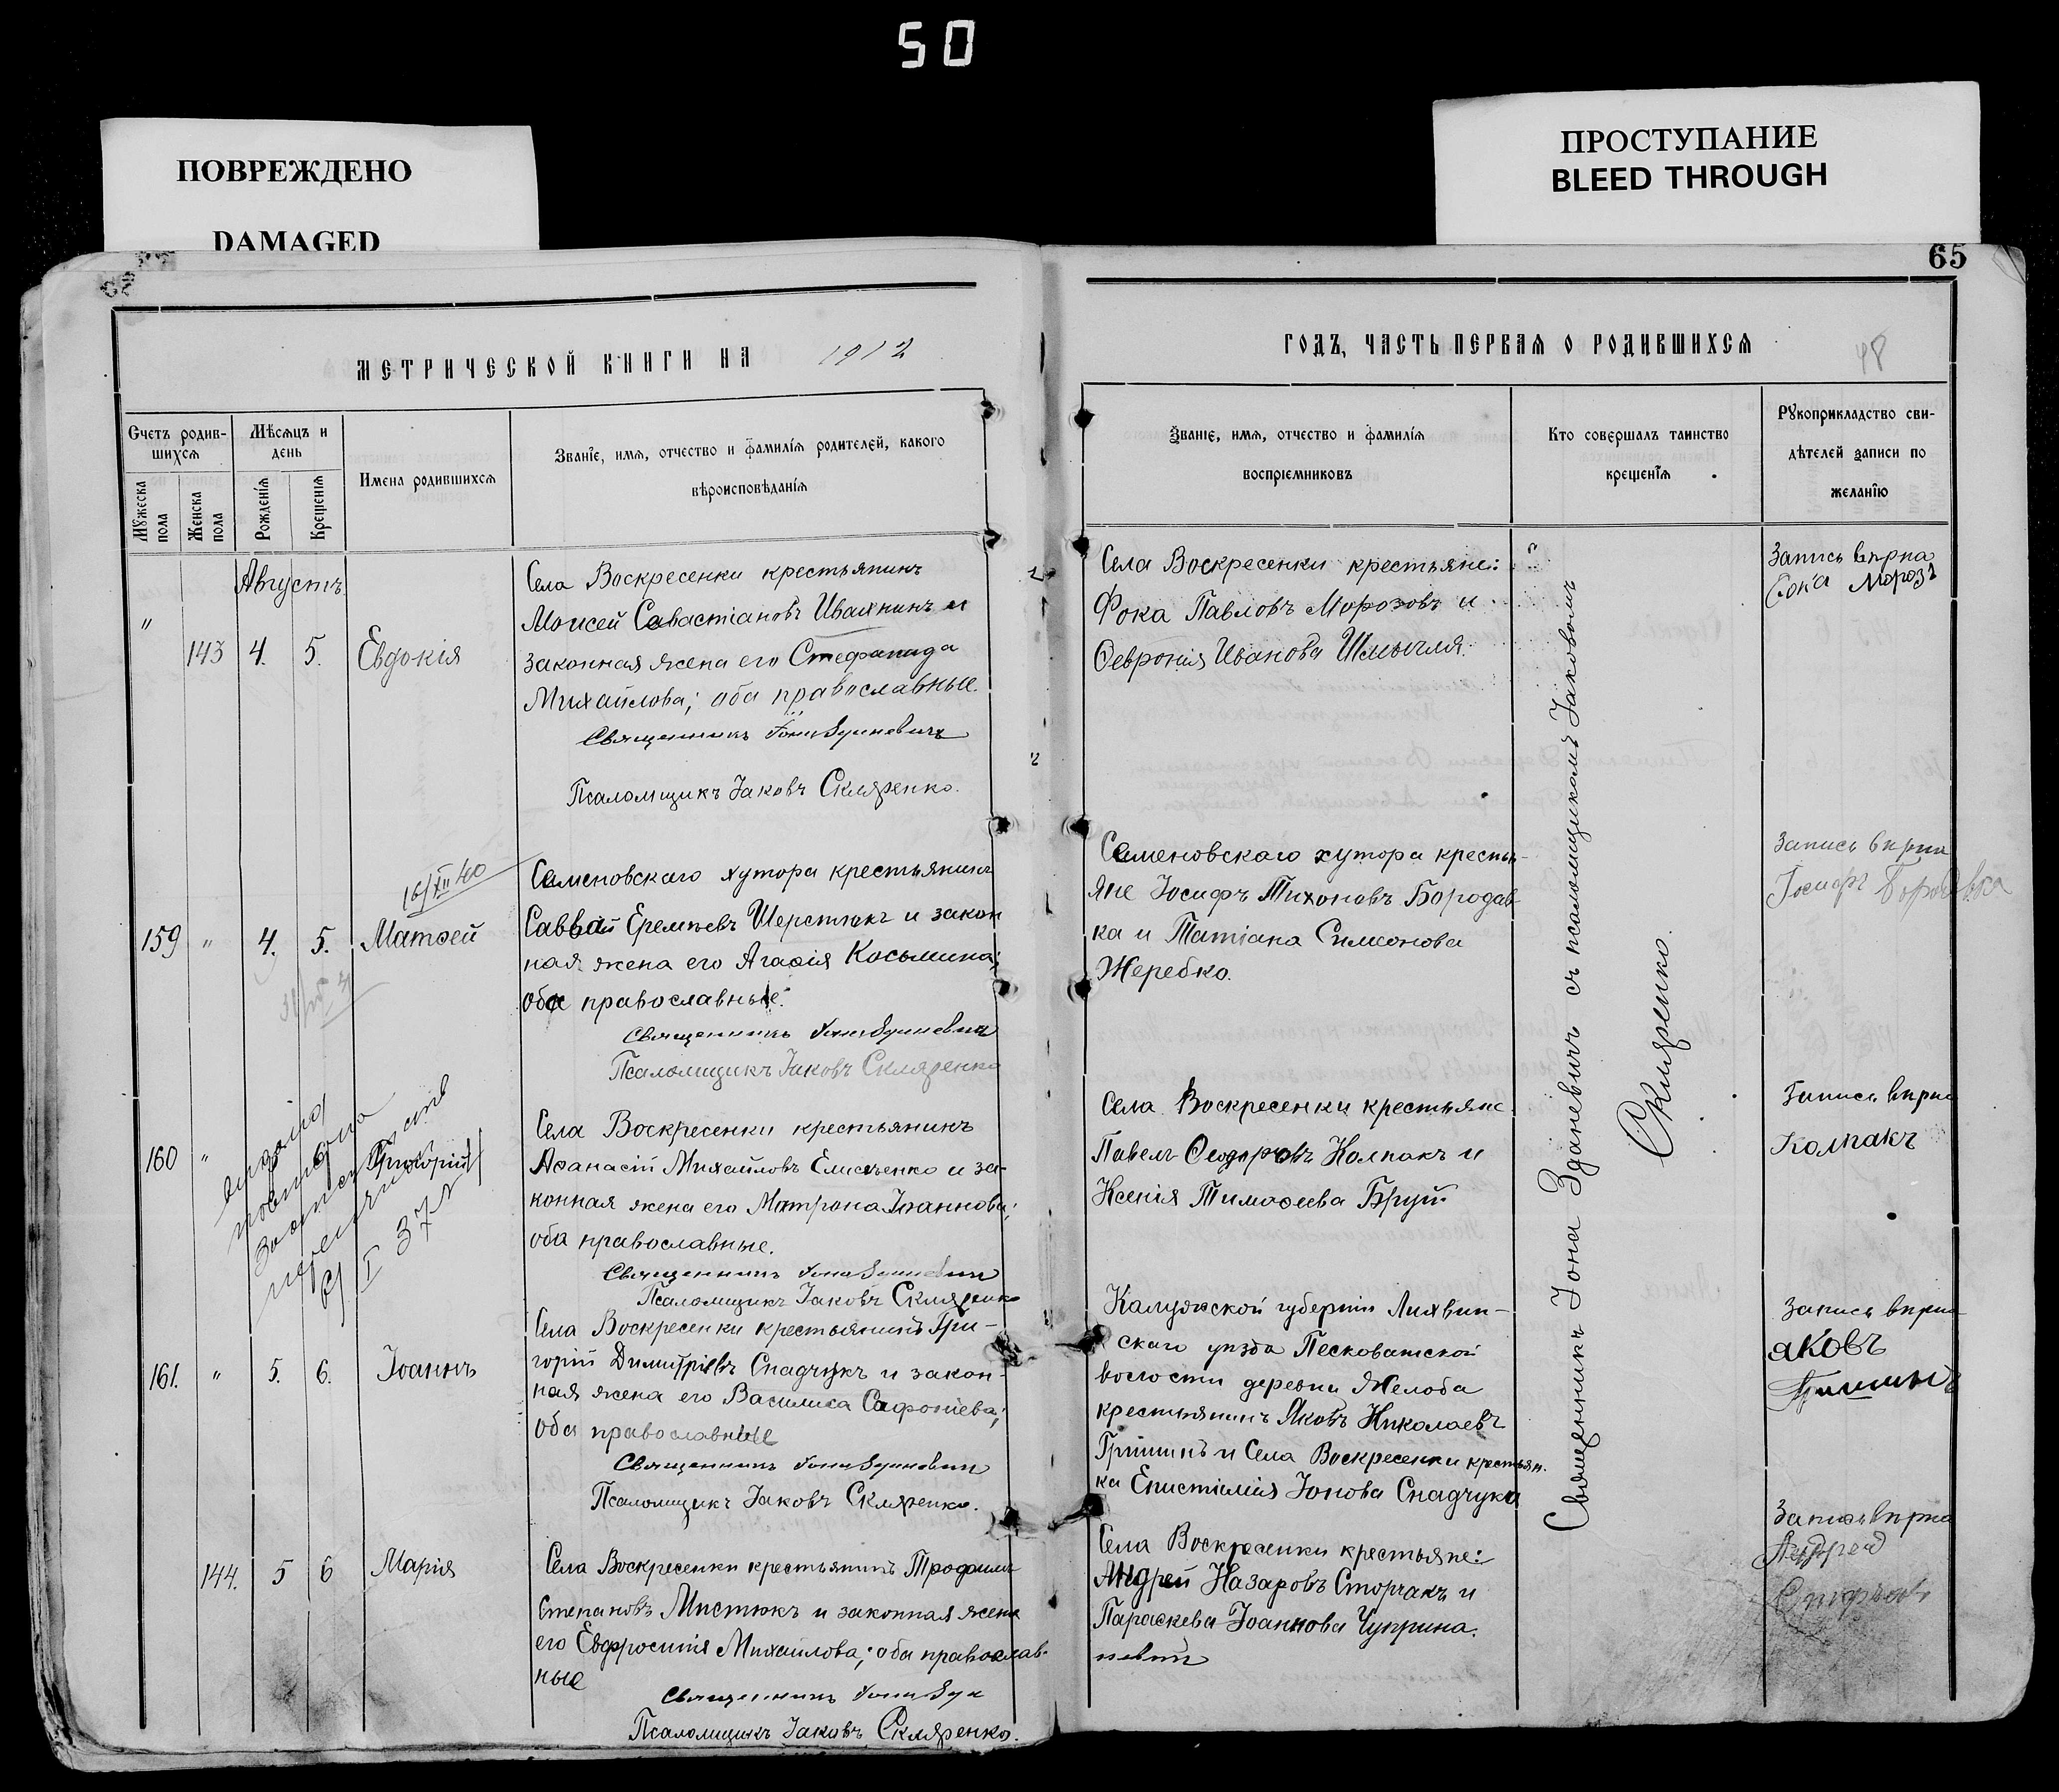 50
ПОВРЕЖДЕНО
DAMAGED
ПРОСТУПАНИЕ
BLEED THROUGH
65
МЕТРИЧЕСКОЙ КНИГИ НА 1912
ГОДЪ, ЧАСТЬ ПЕРВАЯ О РОДИВШИХСЯ
48
Счетъ родив-
шихся
Мужеска пола
Женска пола
Мѣсяцъ и
день
Рожденія
Крещенія
Имена родившихся
Званіе, имя, отчество и фамилія родителей, какого
вѣроисповѣданія
Званіе, имя, отчество и фамилія
воспріемниковъ
Кто совершалъ таинство
крещенія
Рукоприкладство сви-
дѣтелей записи по
желанію
Августъ
" 143 4. 5. Евдокія
Села Воскресенки крестьянинъ
Моисей Севастіановъ Ивахнинъ и
законная жена его Стефанида
Михайлова; оба православные.
Священникъ Іона Зданевичъ
Псаломщикъ Іаковъ Скляренко.
Села Воскресенки крестьяне:
Фока Павловъ Морозовъ и
Ѳевронія Иванова Шмыгля.
Запись вѣрна
Фока Морозъ
16/XII 40
159 " 4. 5. Матѳей
Семеновскаго хутора крестьянинъ
Савва Еремѣевъ Шерстюкъ и закон
ная жена его Агаѳія Косьмина;
оба православные.
Священникъ Іона Зданевичъ
Псаломщикъ Іаковъ Скляренко
Семеновскаго хутора кресть-
яне Іосифъ Тихоновъ Бородав
ка и Татіана Симеонова
Жеребко.
Запись вѣрна
Іосифъ Бородавка
160 "
I 37
Села Воскресенки крестьянинъ
Аѳанасій Михайловъ Елисѣенко и за-
конная жена его Матрона Іоаннова;
оба православные.
Священникъ Іона Зданевичъ
Псаломщикъ Іаковъ Скляренко
Села Воскресенки крестьяне
Павелъ Ѳеодоровъ Колпакъ и
Ксенія Тимоѳеева Бруй
Запись вѣрна
Колпакъ
161. " 5. 6. Іоаннъ
Села Воскресенки крестьянинъ Гри-
горій Димитріевъ Снадчукъ и закон-
ная жена его Василиса Сафоніева;
оба православные
Священникъ Іона Зданевичъ
Псаломщикъ Іаковъ Скляренко.
Калужской губерніи Лихвин-
скаго уѣзда Песковатской
волости деревни Желоба
крестьянинъ Яковъ Николаевъ
Гришинъ и Села Воскресенки крестьян.
ка Епистимія Іонова Снадчука
Запись вѣрна
яковъ
Гришинъ
144. 5 6 Марія
Села Воскресенки крестьянинъ Трофимъ
Степановъ Мистюкъ и законная жена
его Евфросинія Михайлова; оба православ-
ные
Священникъ Іона Зда
Псаломщикъ Іаковъ Скляренко.
Села Воскресенки крестьяне:
Андрей Назаровъ Сторчакъ и
Параскева Іоаннова Чуприна.
Запись вѣрна
Андрей
Сторчакъ
Священникъ Іона Зданевичъ съ псаломщикомъ Іаковомъ
Скляренко.